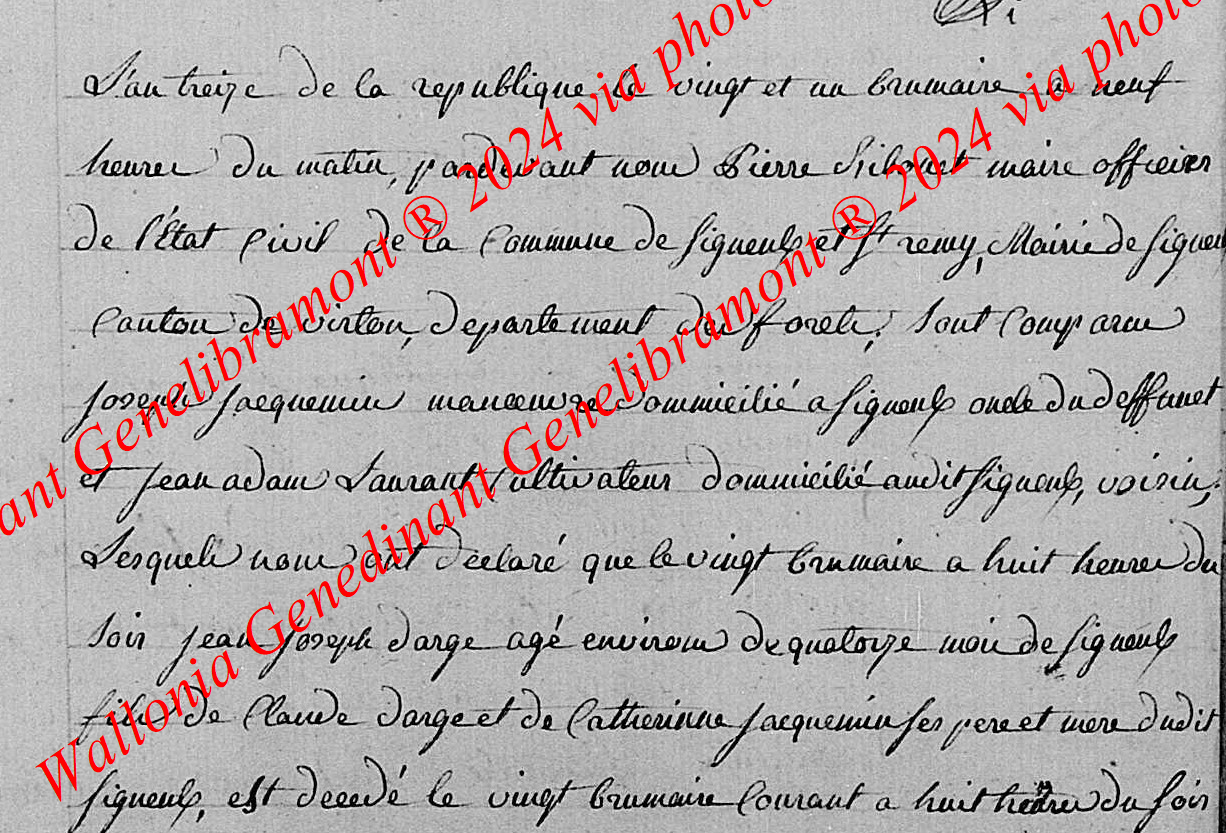 L'an treize de la republique le vingt et un brumaire a neuf
heures du matin, pardevant nous Pierre maire officier
de l'État Civil de la Commune de Signeulx et St remy, Mairie de Signeul
Canton de virton, departement des forets; sont Comparus
joseph jacquemin manoeuvre dommicilié a signeulx oncle du deffunct
et jean adam Laurant Cultivateur dommicilié audit signeulx, voisin,
Lesquels nous ont declaré que le vingt brumaire a huit heures du
soir jean joseph darge agé environs de quatorze mois de signeulx
fils de Claude darge et de Catherinne jacquemin ses pere et mere dudit
signeulx, est decedé le vingt brumaire Courant a huit heures du soir
Wallonia Genedinant Genelibramont ® 2024 via photo
ant Genelibramont ® 2024 via photo